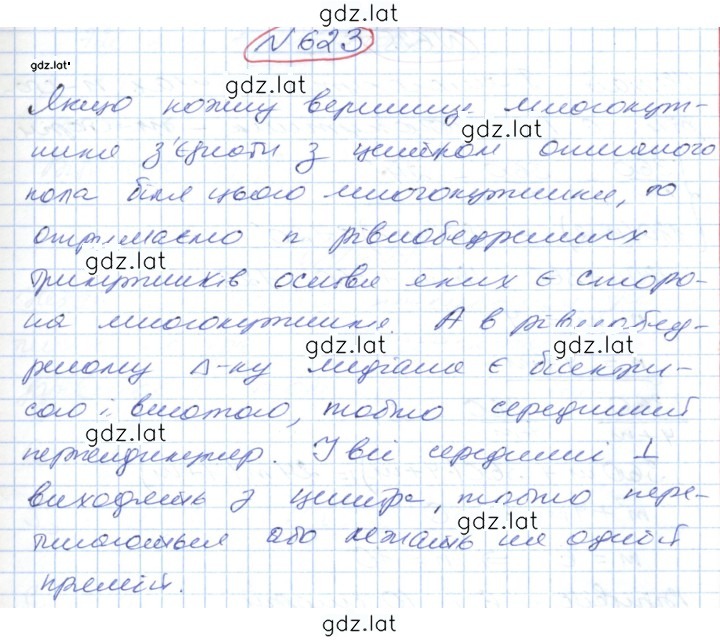 gdz.lat
№623
gdz.lat
gdz.lat
Якщо кожну вершину многокут-
gdz.lat
ника з'єднати з центром описаного
кола біля цього многокутника, то
отримаємо n рівнобедрених
gdz.lat
трикутників основа яких є сторо-
на многокутника. А в рівнобед-
gdz.lat gdz.lat
реному Δ-ку медіана є бісектри-
сою і висотою, тобто середнiй
gdz.lat
перпендикуляр. І всі серединні ⊥
виходять з центра, тобто пере-
gdz.lat
тинаються або лежать на одній
прямій.
gdz.lat